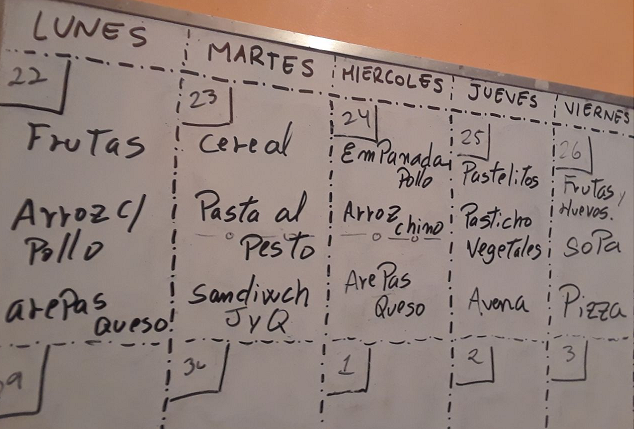 LUNES
MARTES
MIERCOLES
JUEVES
VIERNES
22
Frutas
Arroz c/
Pollo
arepas
queso
23
Cereal
Pasta al
Pesto
Sandiwch
J y Q
24
Empanada
Pollo
Arroz
chino
Arepas
Queso
25
Pastelitos
Pasticho
Vegetales
Avena
26
Frutas y
Huevos.
Sopa
Pizza
1
2
3